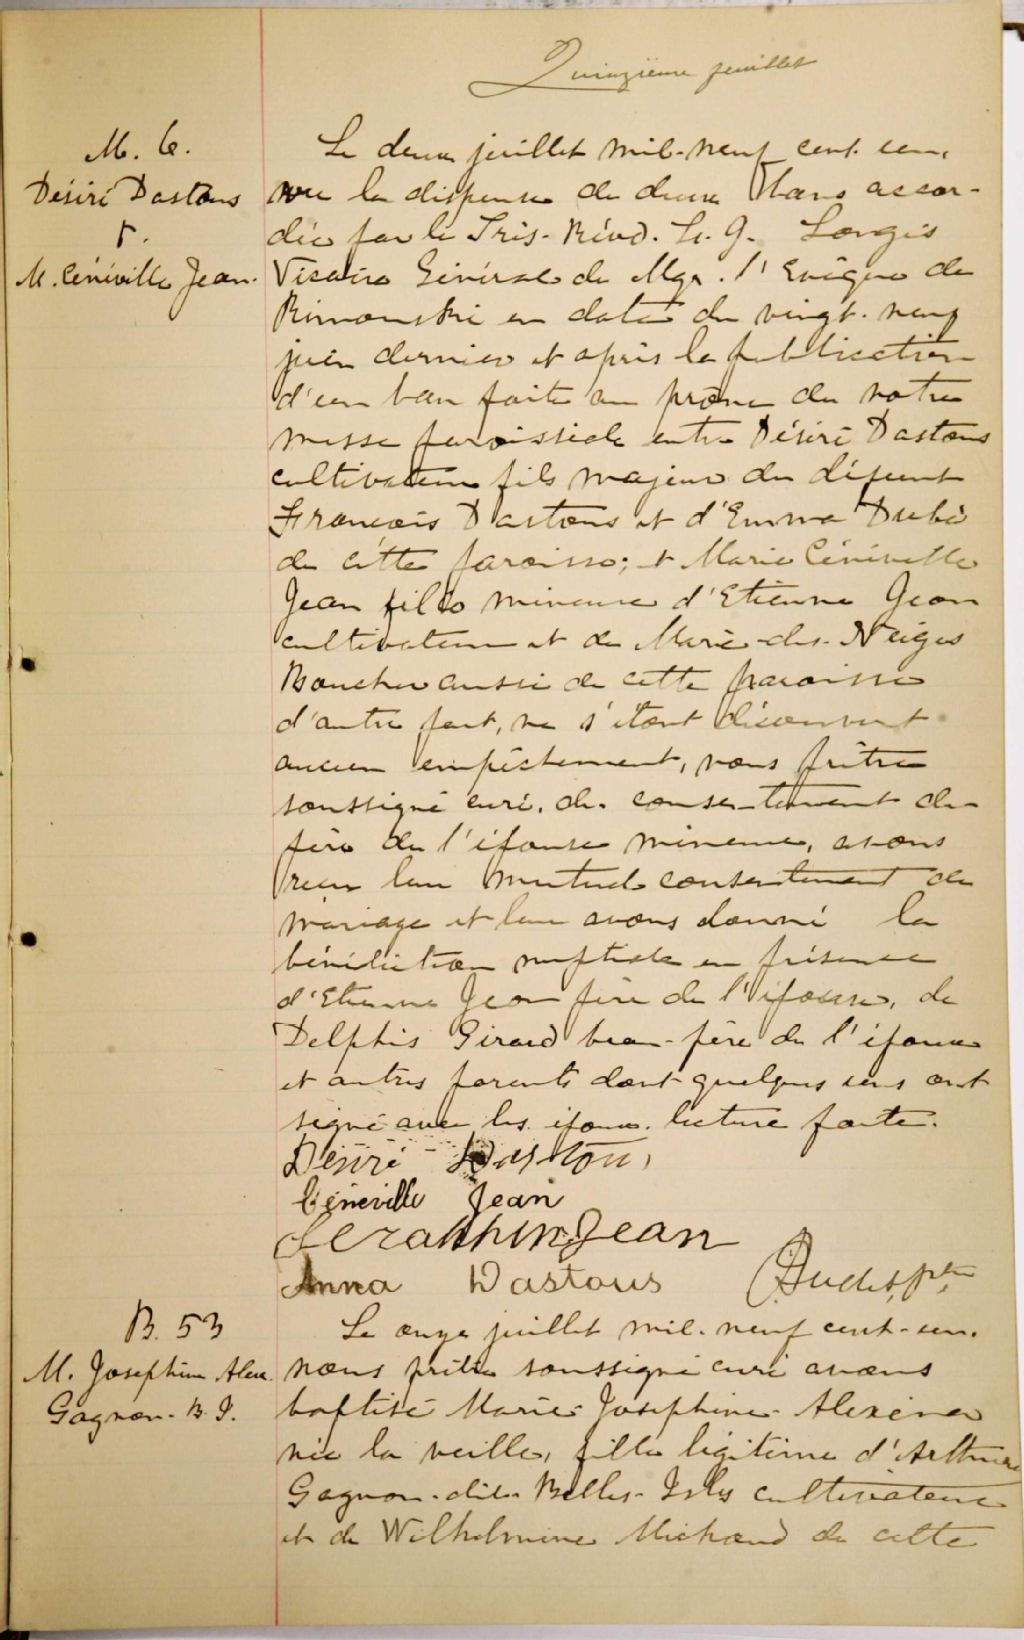 Quinzième feuillet
M. 6.
Désiré Dastous
&
M. Céneville Jean.
Le deux juillet mil-neuf cent-un,
vu la dispense de deux bans accor-
dée par le Très-Révd. L. J. Langis
Vicaire Général de Mgr. l'Evêque de
Rimouski en date du vingt-neuf
juin dernier et après la publication
d'un ban faite au prône de notre
messe paroissiale entre Désiré Dastous
cultivateur fils majeur du défunt
François Dastous et d'Emma Dubé
de cette paroisse; et Marie Céneville
Jean fille mineure d'Etienne Jean
cultivateur et de Marie-des-Neiges
Boucher aussi de cette paroisse
d'autre part, ne s'étant découvert
aucun empêchement, nous prêtre
soussigné curé, du consentement du
père de l'épouse mineure, avons
reçu leur mutuel consentement de
mariage et leur avons donné la
bénédiction nuptiale en présence
d'Etienne Jean père de l'épouse, de
Delphis Girard beau-père de l'époux
et autres parents dont quelques uns ont
signé avec les époux. lecture faite.
Désiré Dastous
Céneville Jean
Seraphin Jean
Anna Dastous
Ptre
B. 53
M. Josephine Alex.
Gagnon-B. I.
Le onze juillet mil-neuf cent-un.
nous prêtre soussigné curé avons
baptisé Marie-Josephine-Alexina
née la veille, fille légitime d'Arthur
Gagnon-dit-Belles-Isles cultivateur
et de Wilhelmine Michaud de cette